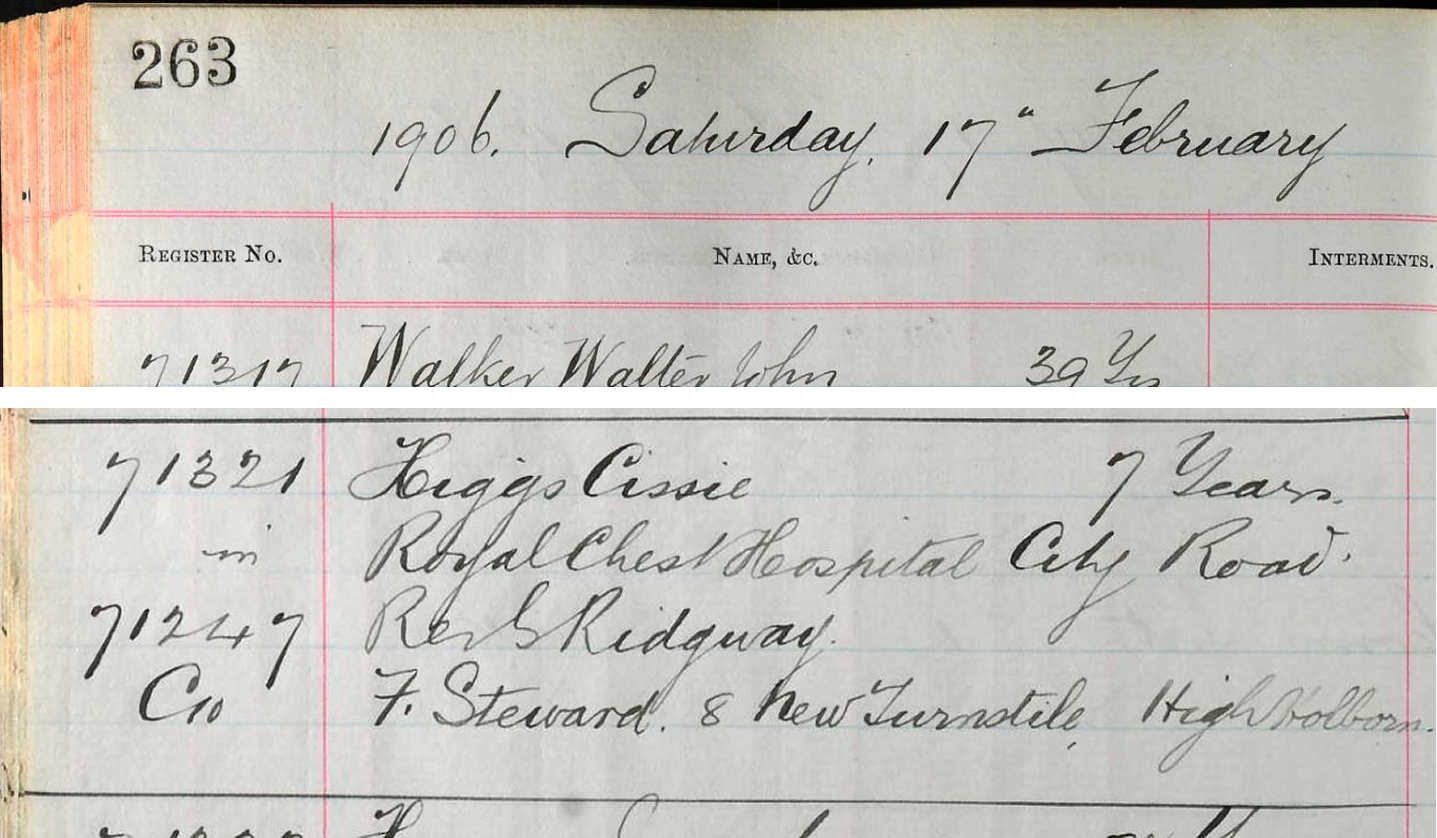 263
1906. Saturday, 17" February
REGISTER NO. NAME, &C. INTERMENTS.
71317 Walker Walter John 39 Yrs
71321 Higgs Cissie 7 Years.
in Royal Chest Hospital City Road.
71247 Rev G Ridgway.
Co F. Steward. 8 New Turnstile, High Holborn.